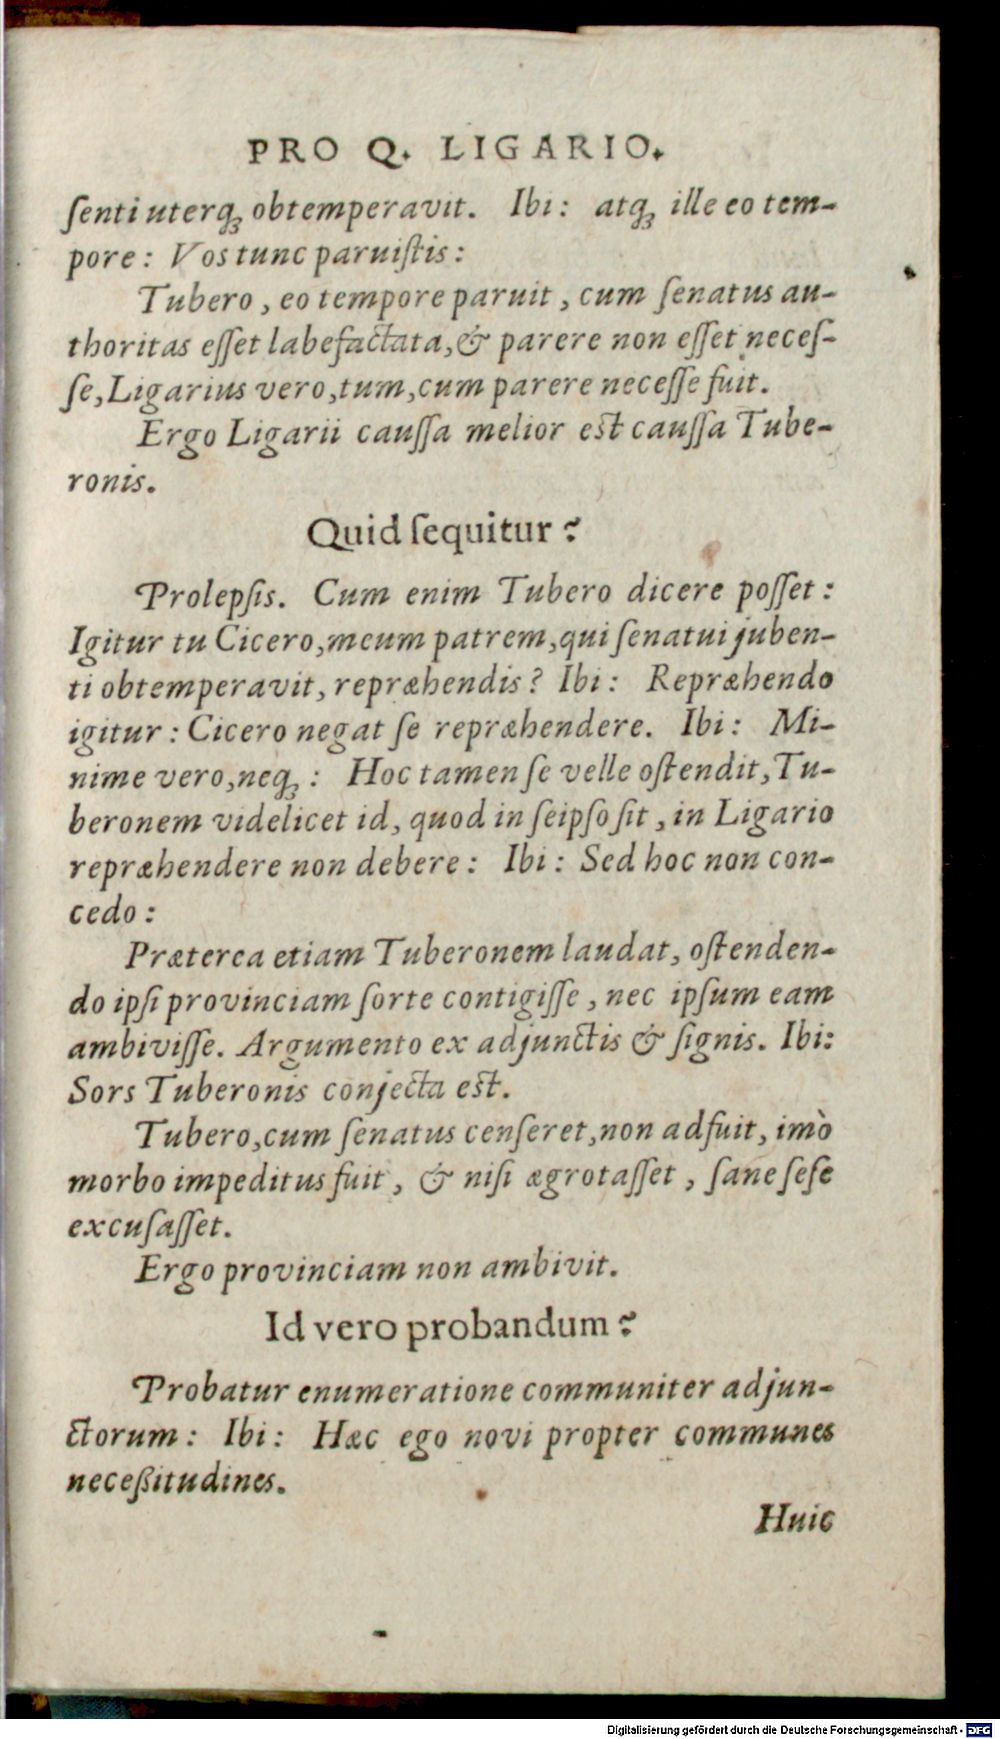 PRO Q. LIGARIO.
ſenti uterq; obtemperavit. Ibi: atq; ille eo tem-
pore: Vos tunc paruiſtis:
Tubero, eo tempore paruit, cum ſenatus au-
thoritas eſſet labefactata, & parere non eſſet neceſ-
ſe, Ligarius vero, tum, cum parere neceſſe fuit.
Ergo Ligarii cauſſa melior est cauſſa Tube-
ronis.
Quid ſequitur?
Prolepſis. Cum enim Tubero dicere poſſet:
Igitur tu Cicero, meum patrem, qui ſenatui juben-
ti obtemperavit, repræhendis? Ibi: Repræhendo
igitur: Cicero negat ſe repræhendere. Ibi: Mi-
nime vero, neq;: Hoc tamen ſe velle oſtendit, Tu-
beronem videlicet id, quod in ſeipſo ſit, in Ligario
repræhendere non debere: Ibi: Sed hoc non con-
cedo:
Præterea etiam Tuberonem laudat, oſtenden-
do ipſi provinciam ſorte contigiſſe, nec ipſum eam
ambiviſſe. Argumento ex adjunctis & ſignis. Ibi:
Sors Tuberonis conjecta est.
Tubero, cum ſenatus cenſeret, non adfuit, imò
morbo impeditus fuit, & niſi ægrotaſſet, ſane ſeſe
excuſaſſet.
Ergo provinciam non ambivit.
Id vero probandum?
Probatur enumeratione communiter adjun-
ctorum: Ibi: Hæc ego novi propter communes
neceßitudines.
Huic
Digitalisierung gefördert durch die Deutsche Forschungsgemeinschaft - DFG